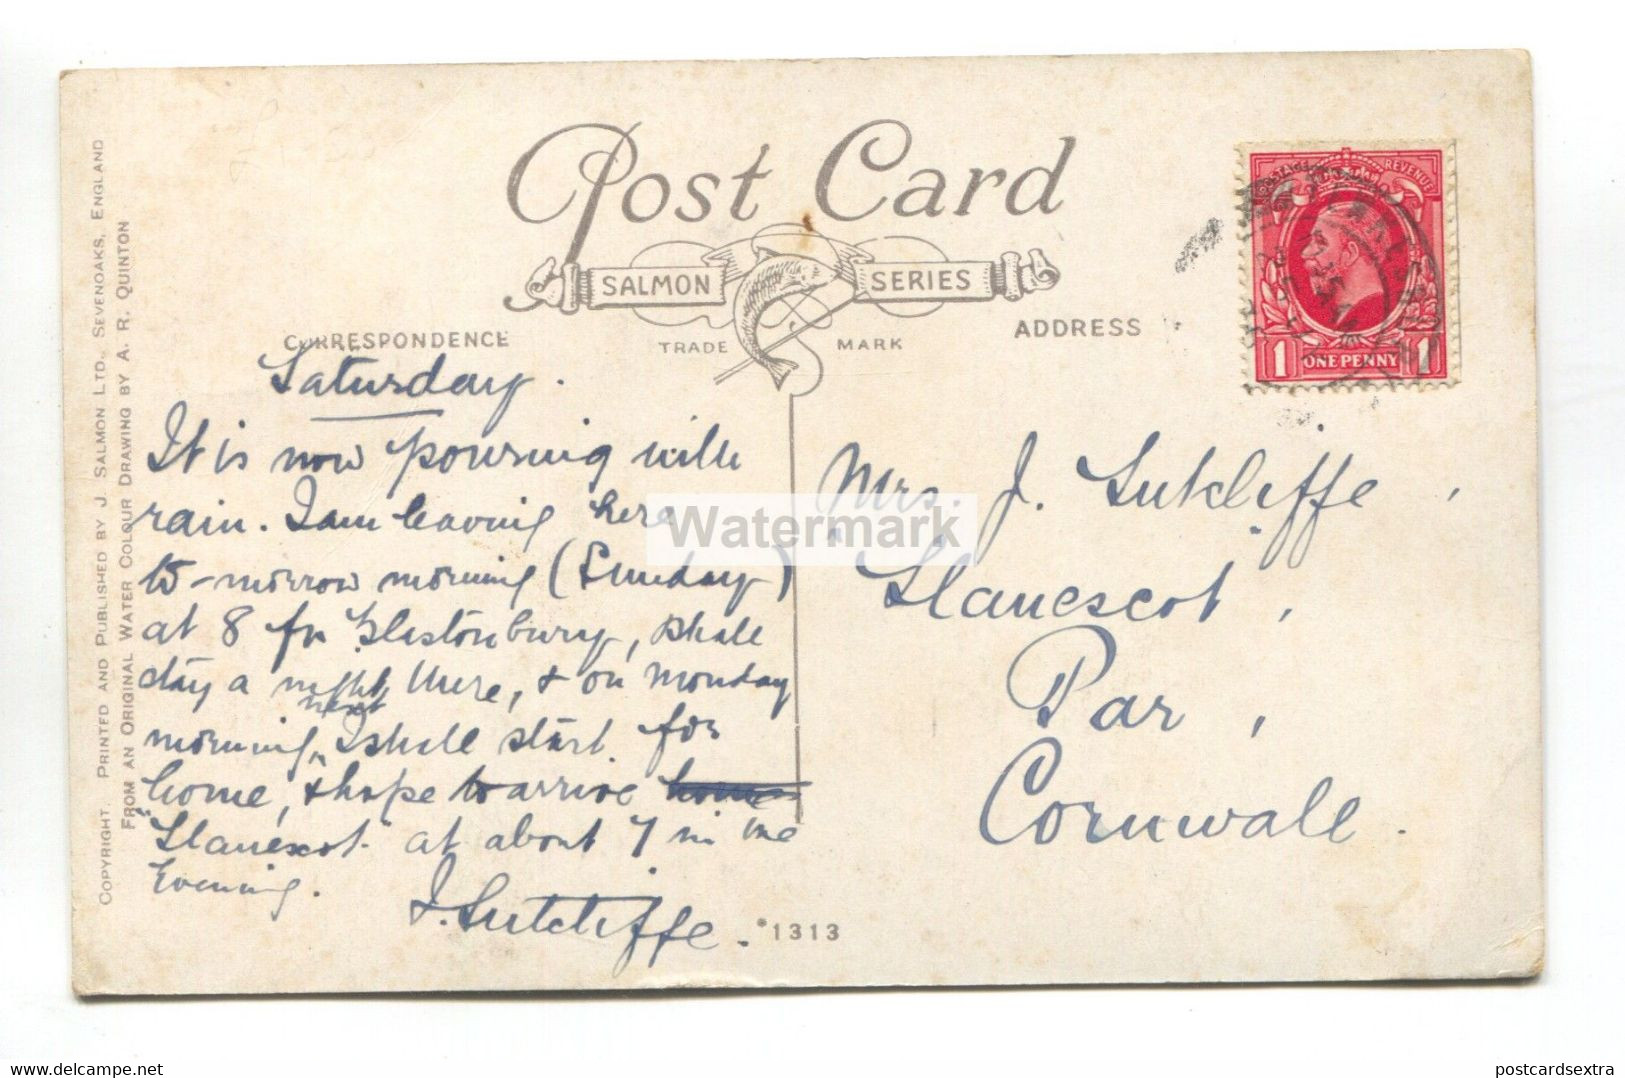 Post Card
SALMON SERIES
TRADE MARK
CORRESPONDENCE
ADDRESS
COPYRIGHT. PRINTED AND PUBLISHED BY J. SALMON LTD., SEVENOAKS, ENGLAND
FROM AN ORIGINAL WATER COLOUR DRAWING BY A. R. QUINTON
POSTAGE REVENUE
1 ONE PENNY 1
Saturday.
It is now pouring with
rain. I am leaving here
to-morrow morning (Sunday)
at 8 for Glastonbury, shall
stay a night there, & on Monday
next
morning, I shall start for
home, & hope to arrive home
"Llanescot" at about 7 in the
Evening.
J. Sutcliffe.
Mrs. J. Sutcliffe,
"Llanescot,
Par,
Cornwall.
*1313
Watermark
www.delcampe.net
postcardsextra